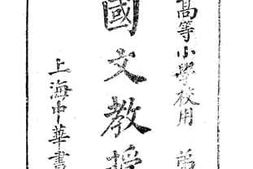 高等小學校用
國文教授
上海中華書